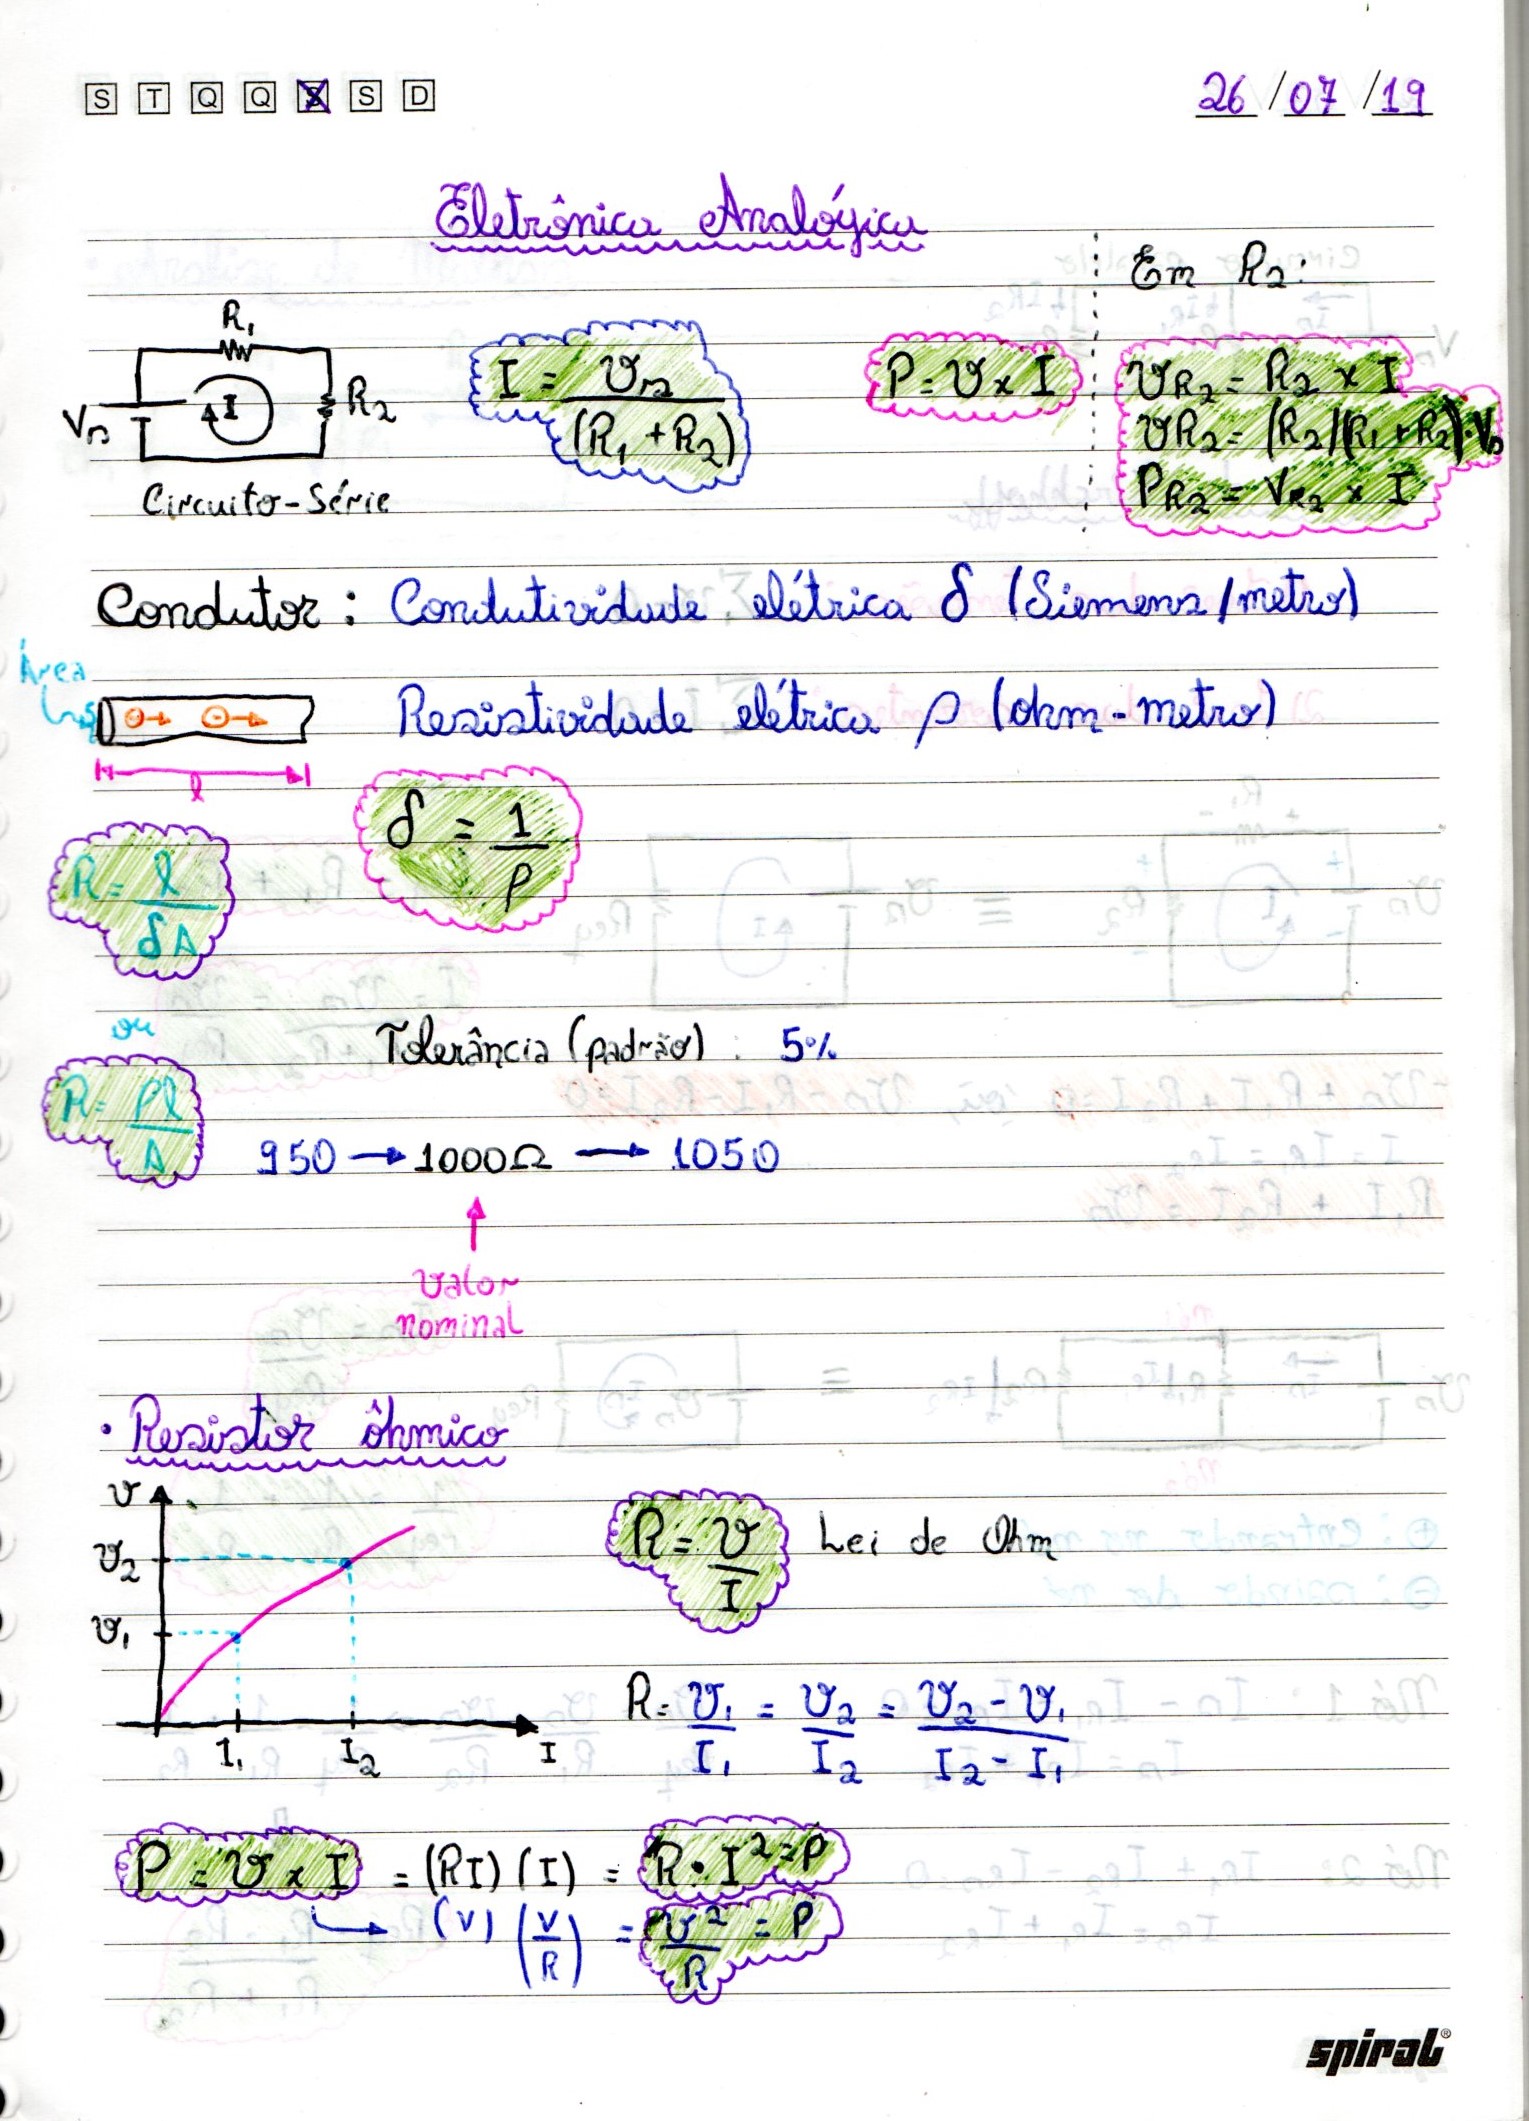 S T Q Q S S D
26/07/19
Eletrônica Analógica
R₁
R₂
Vs
I
Circuito-Série
I = Vs / (R₁ + R₂)
P = V x I
Em R₂:
VR₂ = R₂ x I
VR₂ = (R₂/(R₁ + R₂)).Vs
PR₂ = VR₂ x I
Condutor: Condutividade elétrica δ (Siemens/metro)
Área
Resistividade elétrica ρ (ohm-metro)
l
δ = 1/ρ
R = l/δA
ou
R = ρl/A
Tolerância (padrão): 5%
950 → 1000Ω → 1050
valor
nominal
• Resistor ôhmico
V
V₂
V₁
I₁ I₂ I
R = V/I Lei de Ohm
R = V₁/I₁ = V₂/I₂ = (V₂ - V₁)/(I₂ - I₁)
P = V x I = (RI)(I) = R·I² = P
→ (V)(V/R) = V²/R = P
spiral®